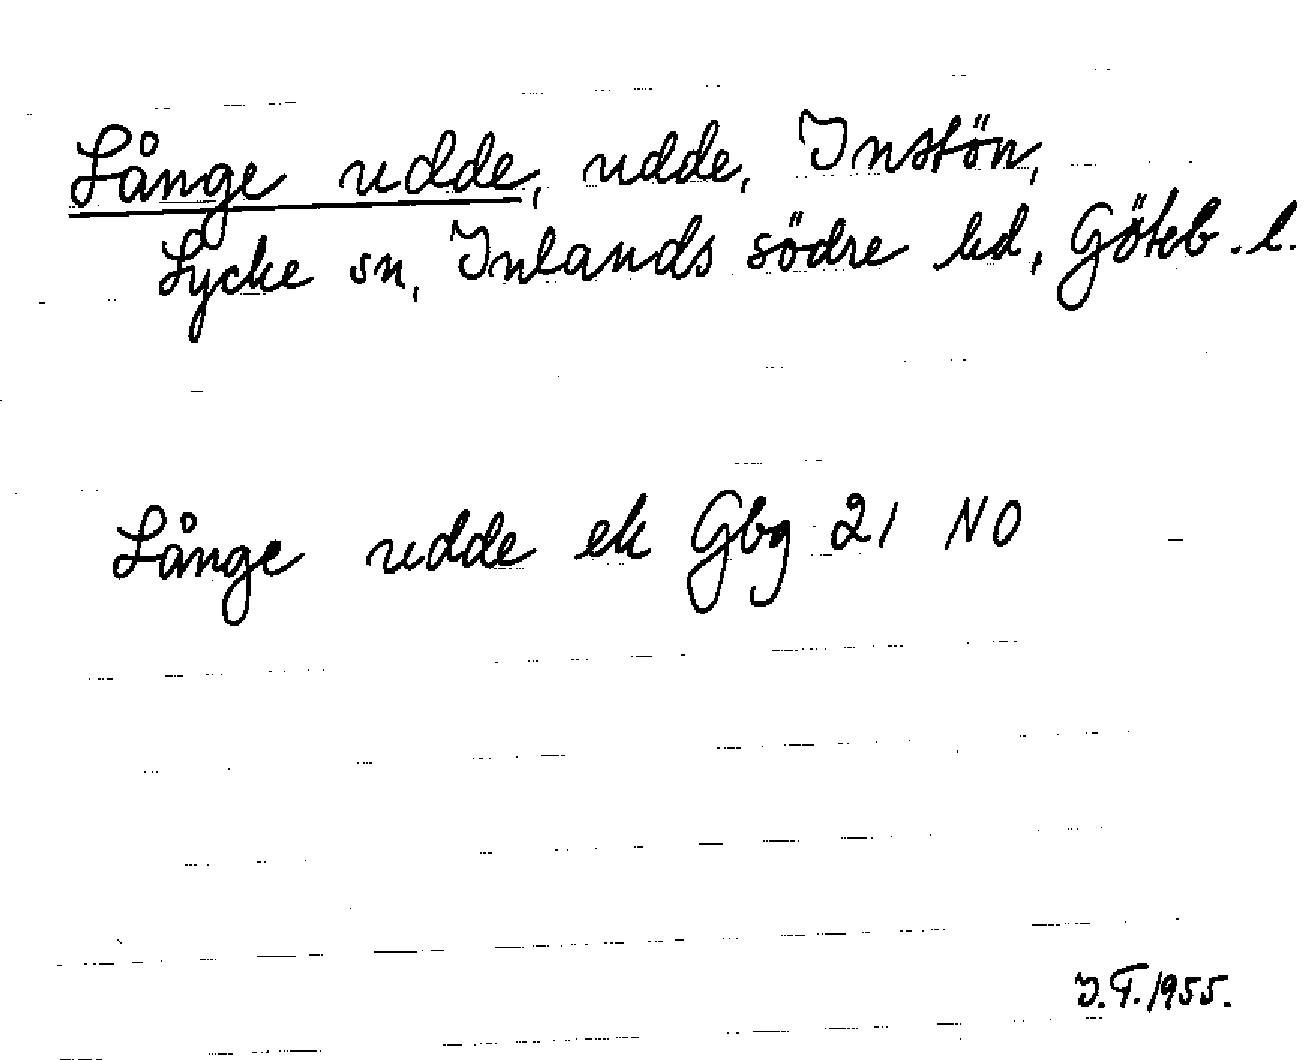 Långe udde, udde, Instön,
Lycke sn, Inlands södre hd, Göteb. l.
Långe udde ek Gbg 21 NO
I.T. 1955.